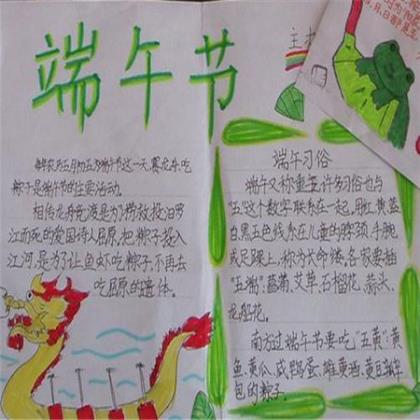 端午节
主
每年农历五月初五为端午节这一天,赛龙舟,吃
粽子是端午节的主要活动。
相传龙舟竞渡是为了捞救投汨罗
江而死的爱国诗人屈原,把粽子投入
江河,是为了让鱼虾吃粽子,不再去
吃屈原的遗体。
端午习俗
端午又称重五,许多习俗也与
"五"这个数字联系在一起,用红、黄、蓝、
白、黑五色线系在儿童的脖颈、手腕
或足踝上,称为长命缕,各家要插
"五端":菖蒲、艾草、石榴花、蒜头、
龙船花。
南方过端午节要吃"五黄":黄
鱼、黄瓜、咸鸭蛋、雄黄酒、黄豆瓣
包的粽子。